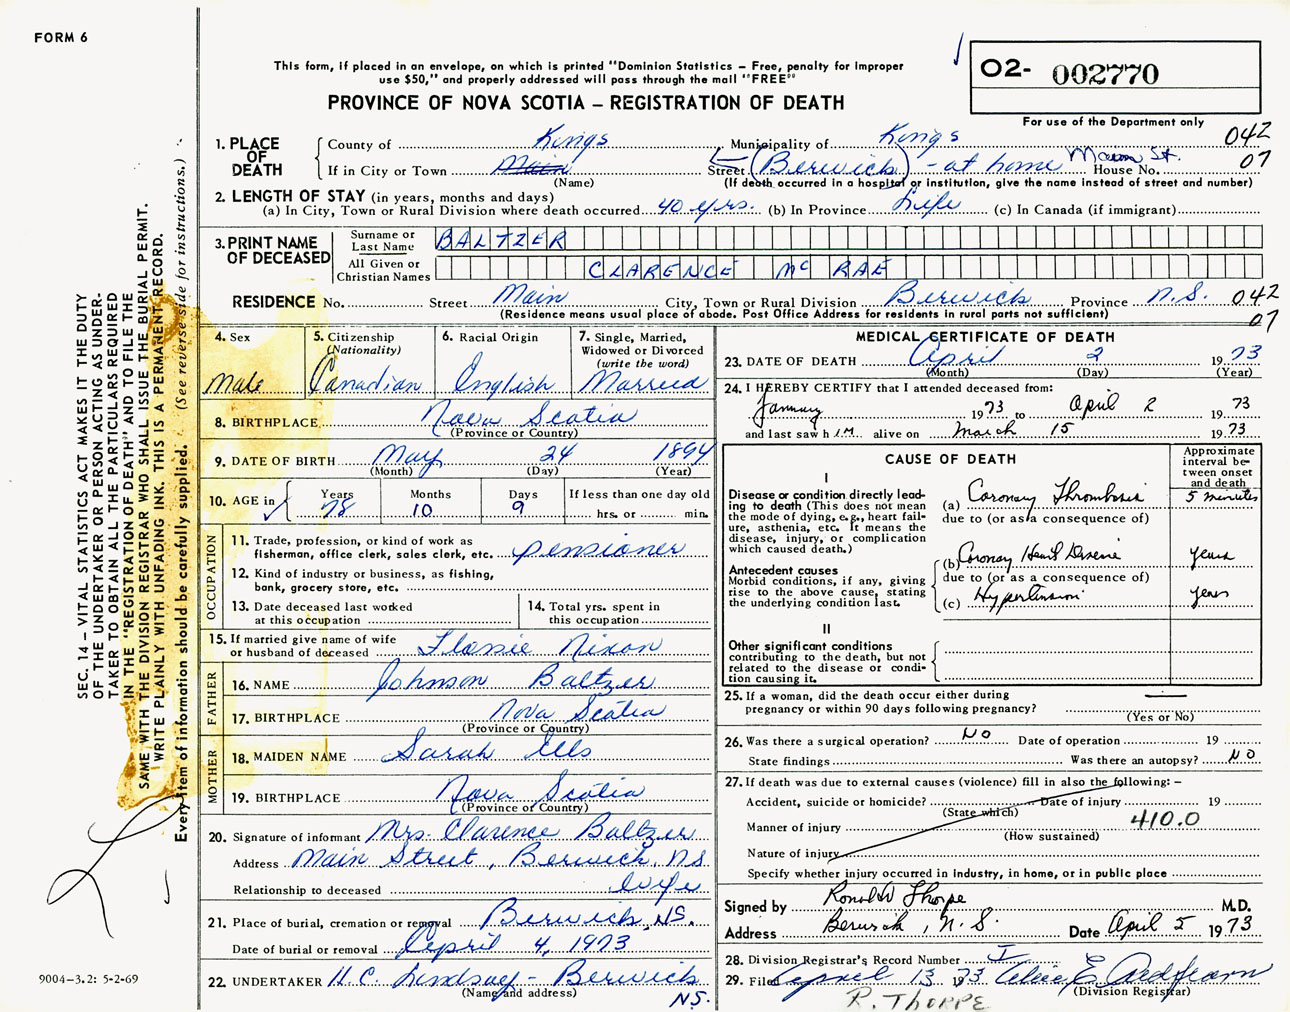 FORM 6
This form, if placed in an envelope, on which is printed "Dominion Statistics – Free, penalty for improper
use $50," and properly addressed will pass through the mail "FREE"
PROVINCE OF NOVA SCOTIA – REGISTRATION OF DEATH
O2- 002770
For use of the Department only
042
07
1. PLACE OF DEATH
County of Kings Municipality of Kings
If in City or Town Main Street (Berwick) - at home Main St. House No.
(Name) (If death occurred in a hospital or institution, give the name instead of street and number)
2. LENGTH OF STAY (in years, months and days)
(a) In City, Town or Rural Division where death occurred 40 yrs. (b) In Province Life (c) In Canada (if immigrant)
3. PRINT NAME OF DECEASED
Surname or Last Name BALTZER
All Given or Christian Names CLARENCE Mc RAE
RESIDENCE No. Street Main City, Town or Rural Division Berwick Province N.S. 042
(Residence means usual place of abode. Post Office Address for residents in rural parts not sufficient) 07
4. Sex
Male
5. Citizenship
(Nationality)
Canadian
6. Racial Origin
English
7. Single, Married, Widowed or Divorced
(write the word)
Married
8. BIRTHPLACE Nova Scotia
(Province or Country)
9. DATE OF BIRTH May 24 1894
(Month) (Day) (Year)
10. AGE in Years 78 Months 10 Days 9 If less than one day old
hrs. or min.
OCCUPATION
11. Trade, profession, or kind of work as
fisherman, office clerk, sales clerk, etc. pensioner
12. Kind of industry or business, as fishing,
bank, grocery store, etc.
13. Date deceased last worked
at this occupation
14. Total yrs. spent in
this occupation
15. If married give name of wife
or husband of deceased Flossie Nixon
FATHER
16. NAME Johnson Baltzer
17. BIRTHPLACE Nova Scotia
(Province or Country)
MOTHER
18. MAIDEN NAME Sarah Ells
19. BIRTHPLACE Nova Scotia
(Province or Country)
20. Signature of informant Mrs. Clarence Baltzer
Address Main Street, Berwick, NS
Relationship to deceased wife
21. Place of burial, cremation or removal Berwick, NS.
Date of burial or removal April 4, 1973
22. UNDERTAKER H.C. Lindsay - Berwick
(Name and address) N.S.
MEDICAL CERTIFICATE OF DEATH
23. DATE OF DEATH April 2 1973
(Month) (Day) (Year)
24. I HEREBY CERTIFY that I attended deceased from:
January 1973 to April 2 1973
and last saw h im alive on March 15 1973
CAUSE OF DEATH
Approximate interval between onset and death
I
Disease or condition directly leading to death (This does not mean the mode of dying, e.g., heart failure, asthenia, etc. It means the disease, injury, or complication which caused death.)
(a) Coronary Thrombosis 5 minutes
due to (or as a consequence of)
Antecedent causes
Morbid conditions, if any, giving rise to the above cause, stating the underlying condition last.
(b) Coronary Heart Disease years
due to (or as a consequence of)
(c) Hypertension years
II
Other significant conditions
contributing to the death, but not related to the disease or condition causing it.
25. If a woman, did the death occur either during
pregnancy or within 90 days following pregnancy? —
(Yes or No)
26. Was there a surgical operation? NO Date of operation 19
State findings Was there an autopsy? NO
27. If death was due to external causes (violence) fill in also the following: –
Accident, suicide or homicide? Date of injury 19
(State which)
Manner of injury 410.0
(How sustained)
Nature of injury
Specify whether injury occurred in industry, in home, or in public place
Signed by Ronald Thorpe M.D.
Address Berwick, N.S. Date April 5 1973
28. Division Registrar's Record Number I
29. Filed April 13 1973
(Division Registrar)
R. THORPE
SEC. 14 – VITAL STATISTICS ACT MAKES IT THE DUTY
OF THE UNDERTAKER OR PERSON ACTING AS UNDER-
TAKER TO OBTAIN ALL THE PARTICULARS REQUIRED
IN THE "REGISTRATION OF DEATH" AND TO FILE THE
SAME WITH THE DIVISION REGISTRAR WHO SHALL ISSUE THE BURIAL PERMIT.
WRITE PLAINLY WITH UNFADING INK. THIS IS A PERMANENT RECORD.
Every item of information should be carefully supplied. (See reverse side for instructions.)
9004–3.2: 5-2-69